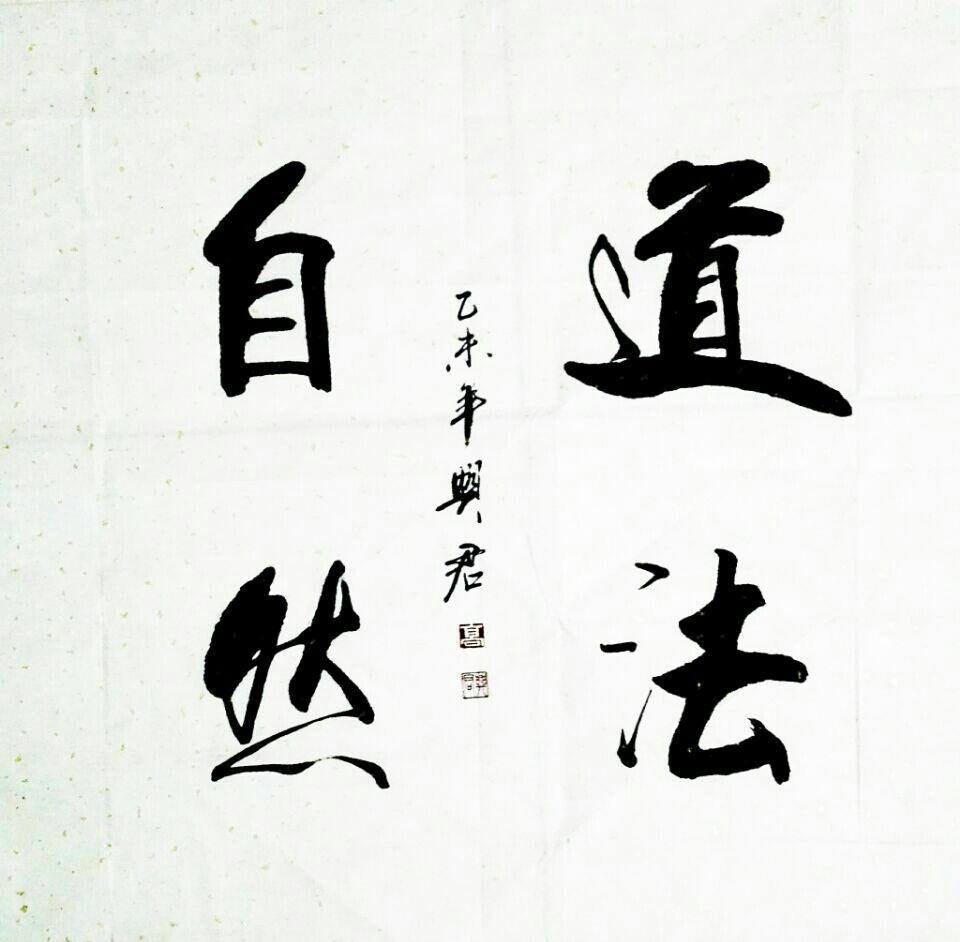 道法
自然
乙未年興君